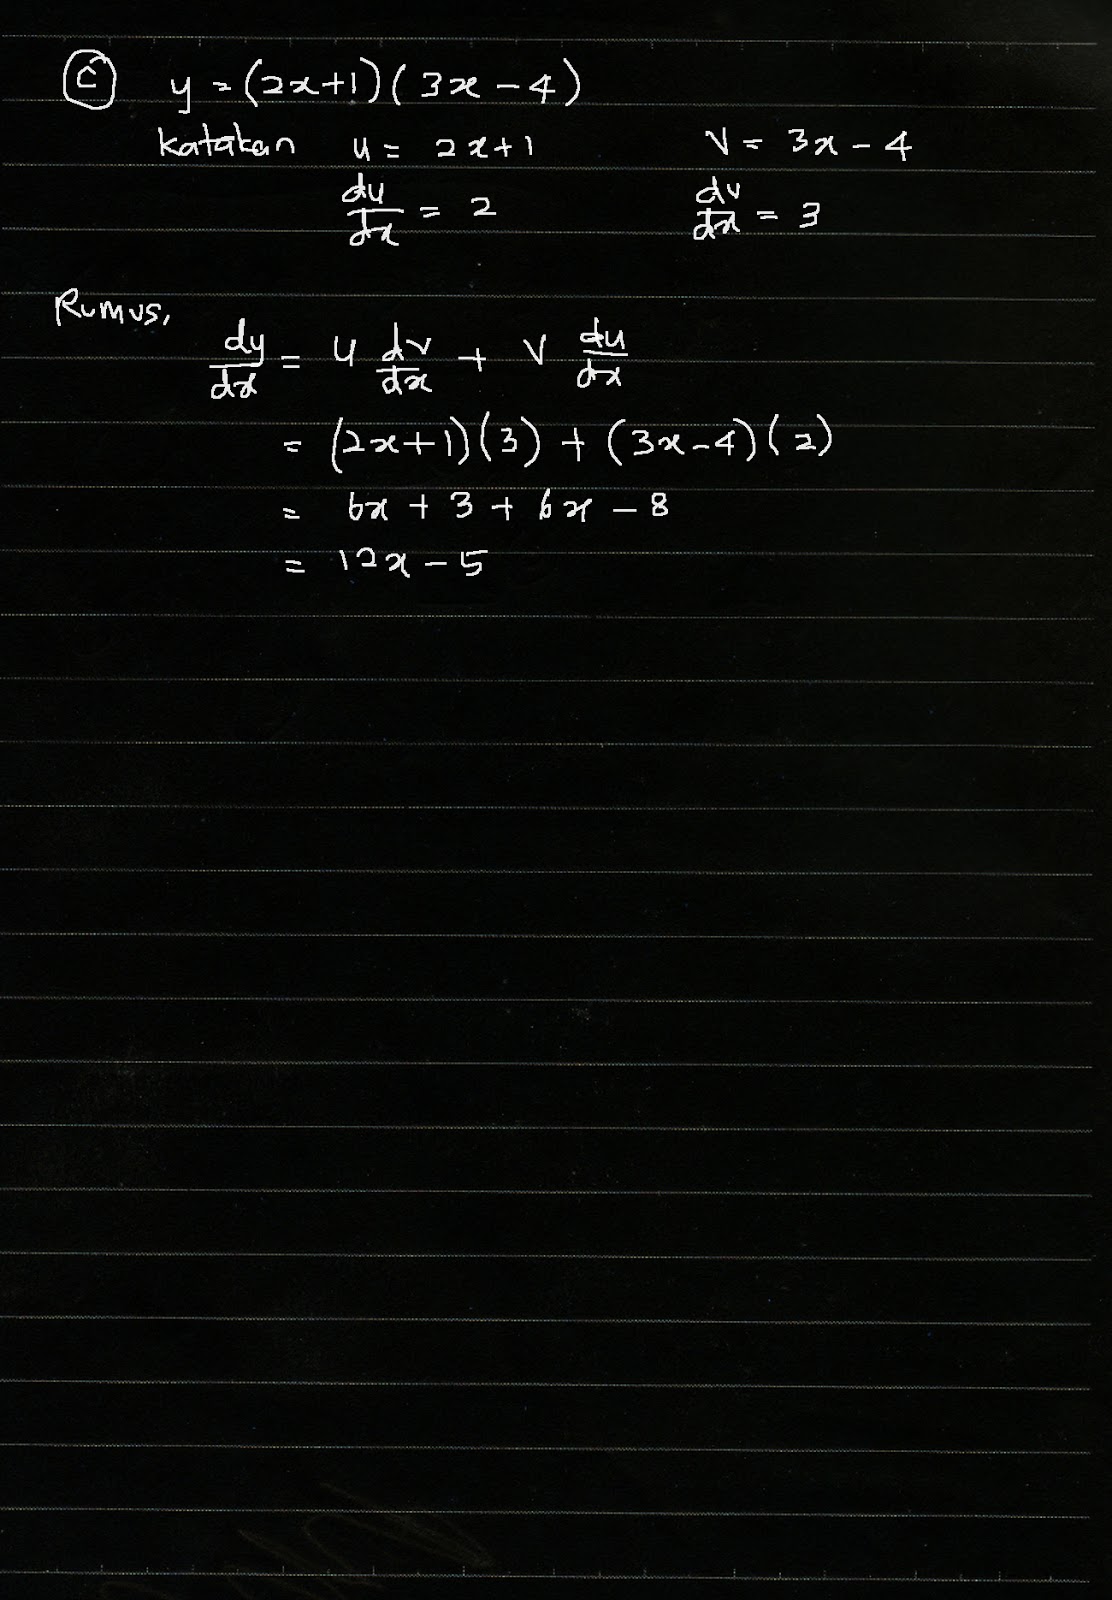 c y = (2x+1)(3x-4)
katakan u = 2x+1 v = 3x-4
du/dx = 2 dv/dx = 3
Rumus,
dy/dx = u dv/dx + v du/dx
= (2x+1)(3) + (3x-4)(2)
= 6x + 3 + 6x - 8
= 12x - 5